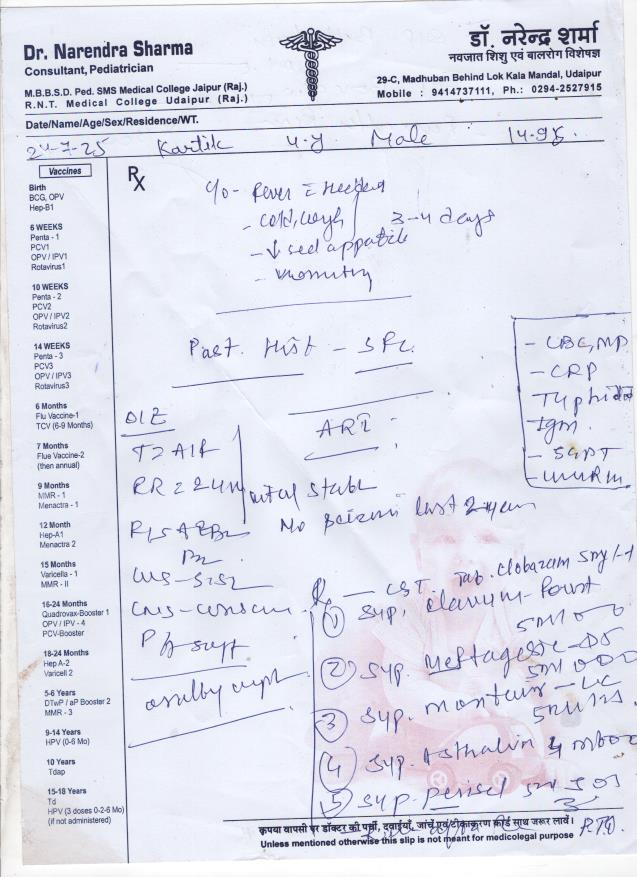 Dr. Narendra Sharma
Consultant, Pediatrician
M.B.B.S.D. Ped. SMS Medical College Jaipur (Raj.)
R.N.T. Medical College Udaipur (Raj.)
डॉ. नरेन्द्र शर्मा
नवजात शिशु एवं बालरोग विशेषज्ञ
29-C, Madhuban Behind Lok Kala Mandal, Udaipur
Mobile : 9414737111, Ph.: 0294-2527915
Date/Name/Age/Sex/Residence/WT.
24-7-25 Kartik 4-y. Male
Vaccines
Birth
BCG, OPV
Hep-B1
6 WEEKS
Penta - 1
PCV1
OPV / IPV1
Rotavirus1
10 WEEKS
Penta - 2
PCV2
OPV / IPV2
Rotavirus2
14 WEEKS
Penta - 3
PCV3
OPV / IPV3
Rotavirus3
6 Months
Flu Vaccine-1
TCV (6-9 Months)
7 Months
Flue Vaccine-2
(then annual)
9 Months
MMR - 1
Menactra - 1
12 Month
Hep-A1
Menactra 2
15 Months
Varicella - 1
MMR - II
16-24 Months
Quadrovax-Booster 1
OPV / IPV - 4
PCV-Booster
18-24 Months
Hep A-2
Varicell 2
5-6 Years
DTwP / aP Booster 2
MMR - 3
9-14 Years
HPV (0-6 Mo)
10 Years
Tdap
15-18 Years
Td
HPV (3 doses 0-2-6 Mo)
(if not administered)
Rx
c/o - Fever
- cold, cough 3-4 days
- ↓sed appatite
- vomiting
Past. Hist -
- CBC, MP
- CRP
Typhidot
Igm.
- SGPT
O/E
ART
vital stable
No last 2 years
CVS - S1S2
CNS -
P/A soft
- CST. Tab. Clobazam 5mg
(1) Syp. Clavum - Forst
5ml
(2) Syp. Meftagesic - DS
5ml
(3) Syp. Montair - LC
5ml
(4) Syp. Asthalin 4 ml
(5) Syp. Periset 5ml SOS
कृपया वापसी पर डॉक्टर की पर्ची, दवाईयाँ, जाँचें एवं टीकाकरण कार्ड साथ जरूर लावें।
Unless mentioned otherwise this slip is not meant for medicolegal purpose